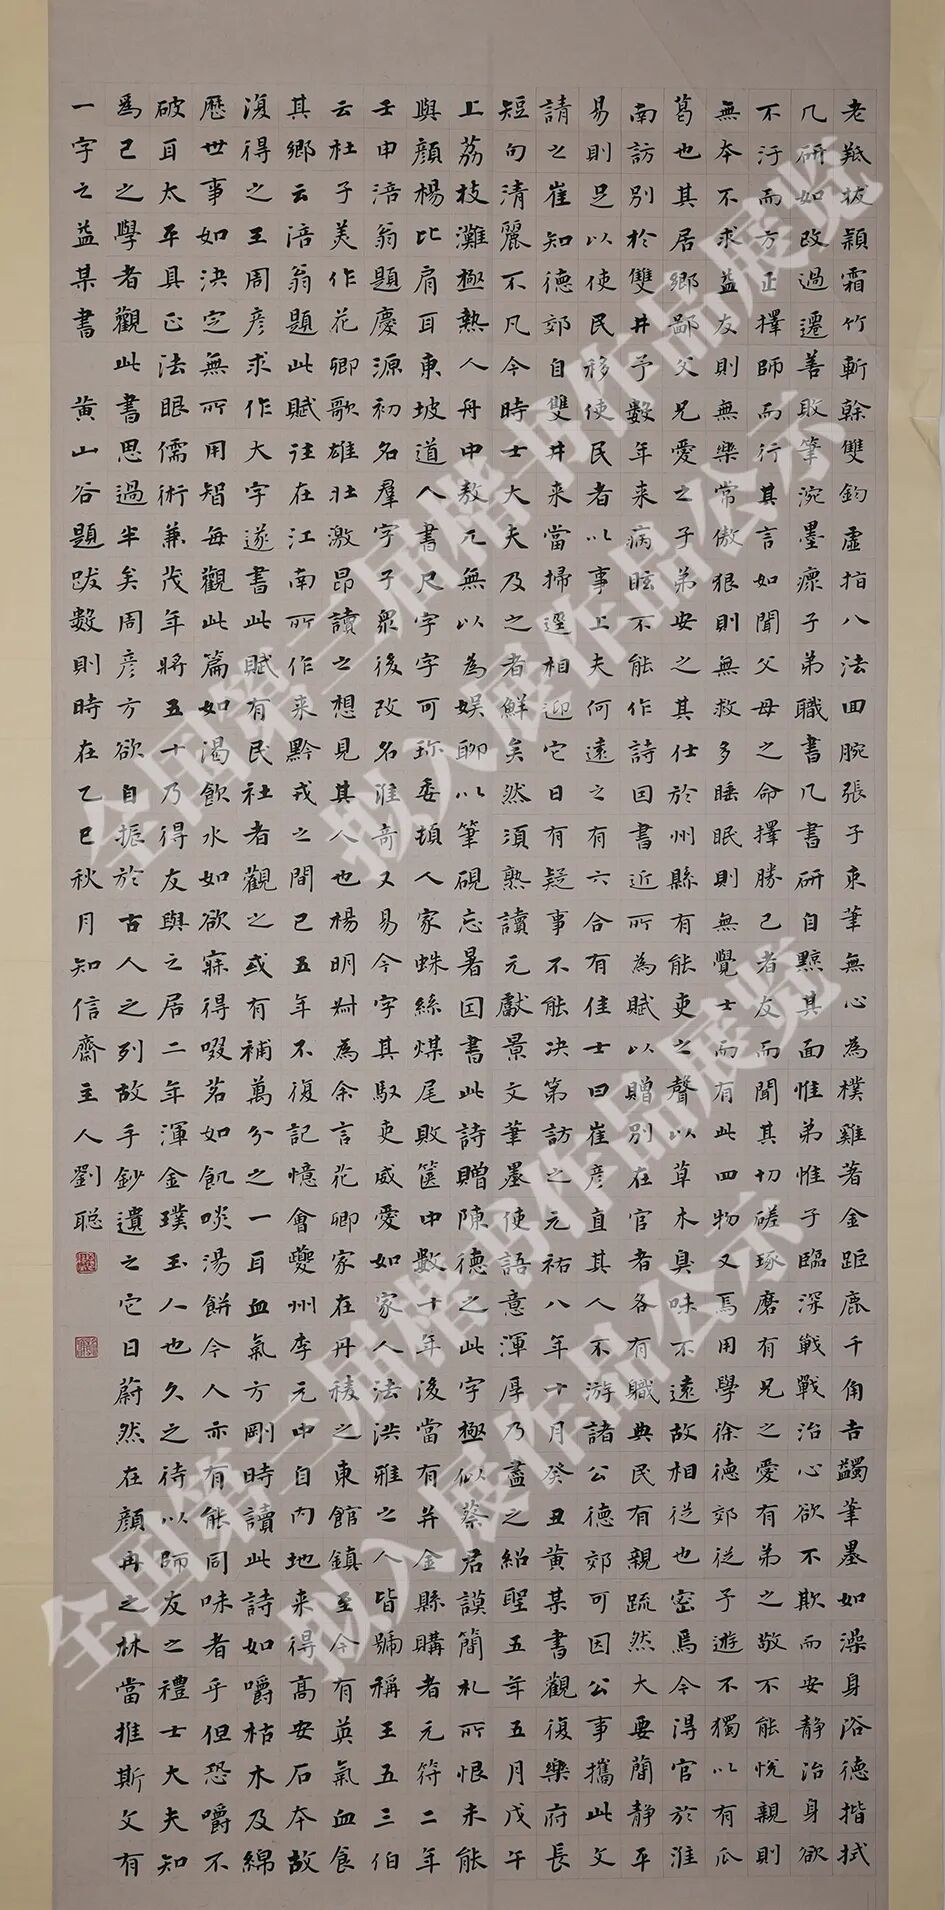 老羝拔穎霜竹斬榦雙鈎虛指八法回腕張子束筆無心為樸雞著金距鹿千角吉蠲筆墨如澡身浴德揩拭
几研如改過遷善敗筆涴墨瘝子弟職書几書研自黥其面惟弟惟子臨深戰戰治心欲不欺而安靜治身欲
不汙而方正擇師而行其言如聞父母之命擇勝己者友而聞其切磋琢磨有兄之愛有弟之敬不能悅親則
無本不求益友則無樂常傲狠則無救多睡眠則無覺士而有此四物又焉用學徐德郊從予遊不獨以有瓜
葛也其居鄉鄙父兄愛之子弟安之其仕於州縣有能吏之聲以草木臭味不遠故相從也密焉今得官於淮
南訪別於雙井予數年來病眩不能作詩因書近所為賦以贈別在官者各有職典民有親疏然大要簡靜平
易則足以使民移使民者以事上夫何遠之有六合有佳士曰崔彥直其人不游諸公德郊可因公事攜此文
請之崔知德郊自雙井來當掃選相迎它日有疑事不能決第訪之元祐八年十月癸丑黃某書觀復樂府長
短句清麗不凡今時士大夫及之者鮮矣然須熟讀元獻景文筆墨使語意渾厚乃盡之紹聖五年五月戊午
上荔枝灘極熱人舟中敖兀無以為娛聊以筆硯忘暑因書此詩贈陳德之此字極似蔡君謨簡札所恨未能
與顏楊比肩耳東坡道人書尺字字可珎委頓人家蛛絲煤尾敗篋中數十年後當有并金縣購者元符二年
壬申涪翁題慶源初名羣字子眾後改名淮奇又易今字其馭吏威愛如家人法洪雅之人皆號稱王五三伯
云杜子美作花卿歌雄壯激昂讀之想見其人也楊明叔為余言花卿家在丹稜之東館鎮至今有英氣血食
其鄉云涪翁題此賦往在江南所作来黔戎之間已五年不復記憶會夔州李元中自內地来得高安石本故
復得之王周彥求作大字遂書此賦有民社者觀之或有補萬分之一耳血氣方剛時讀此詩如嚼枯木及綿
歷世事如決定無所用智每觀此篇如渴飲水如欲寐得啜茗如飢啖湯餅今人亦有能同味者乎但恐嚼不
破耳太平具正法眼儒術兼茂年將五十乃得友與之居二年渾金璞玉人也久之待以師友之禮士大夫知
為己之學者觀此書思過半矣周彥方欲自振於古人之列故手鈔遺之它日蔚然在顏冉之林當推斯文有
一字之益某書 黃山谷題跋數則時在乙巳秋月知信齋主人劉聰
全国第三届楷书作品展览
拟入展作品公示
全国第三届楷书作品展览
拟入展作品公示